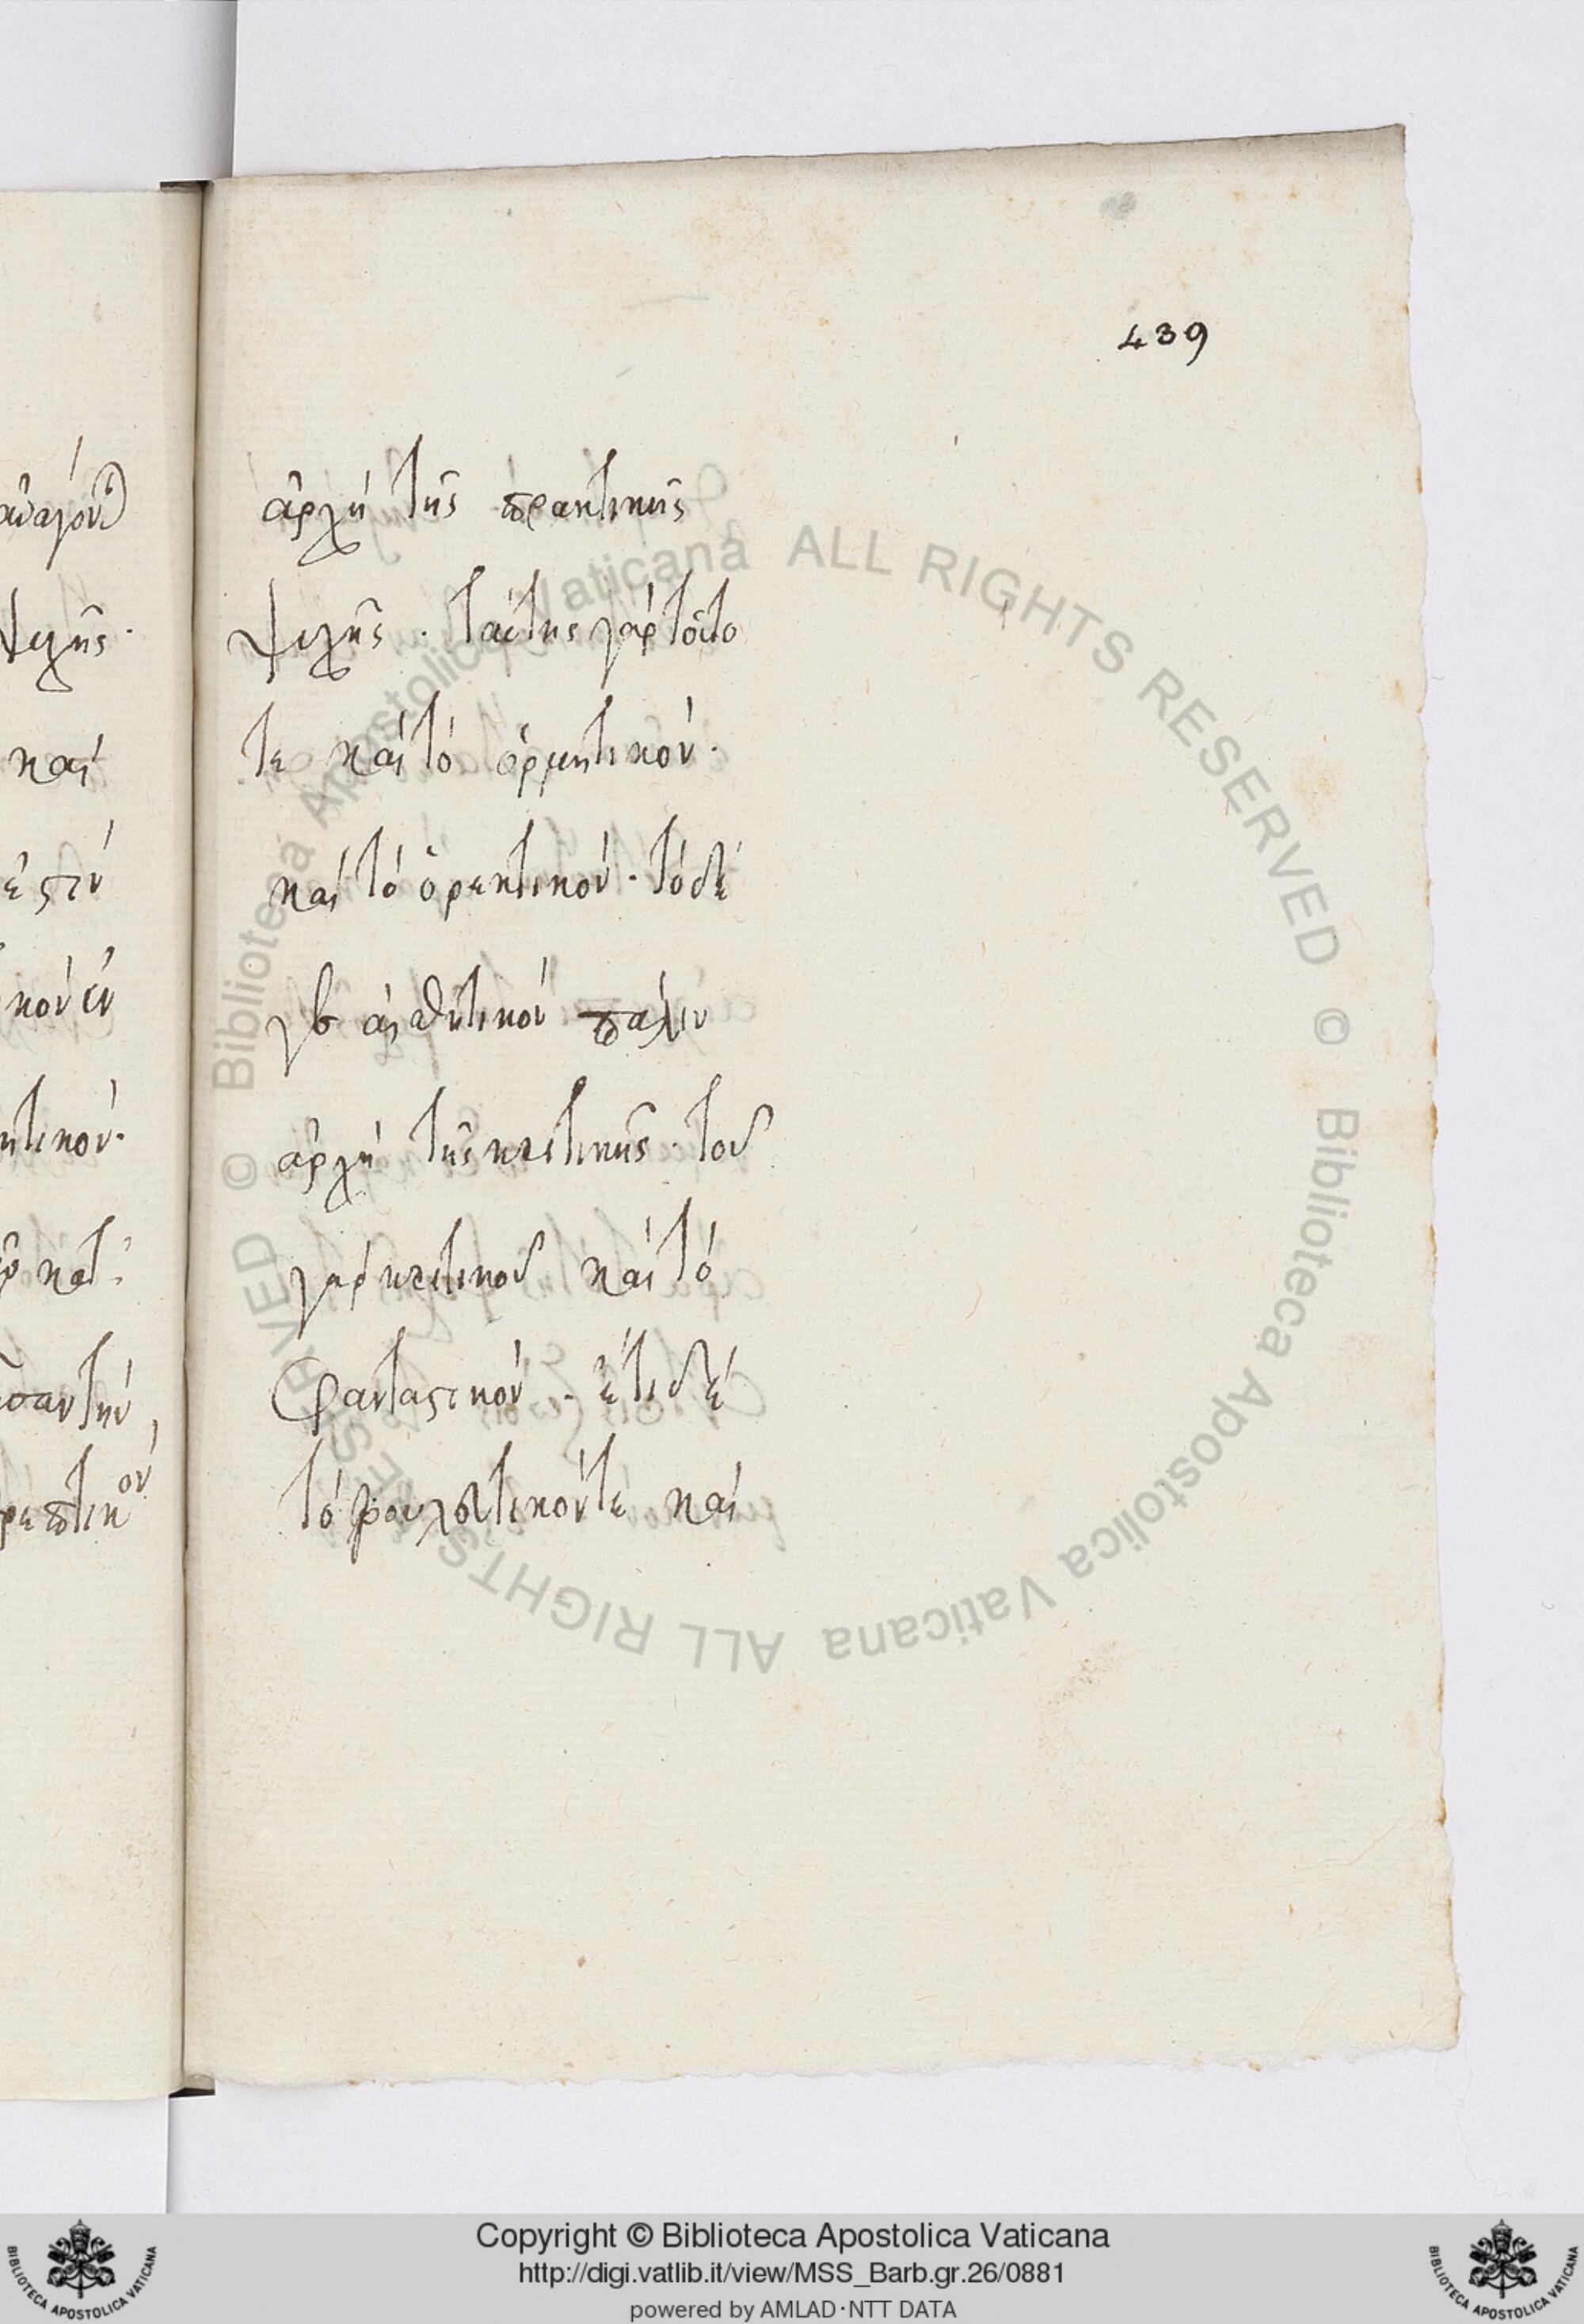 439
ἀρχὴ τῆς πρακτικῆς
ψυχῆς· ταύτης γὰρ τοῦτο
τε καὶ τὸ ὁρμητικόν·
καὶ τὸ ὀρεκτικόν· τὸ δέ
γε αἰσθητικὸν πάλιν
ἀρχὴ τῆς κριτικῆς· τοῦ
γὰρ κριτικοῦ καὶ τὸ
φανταστικόν· ἔτι δέ
τὸ βουλευτικόν τε καὶ
ψυχῆς·
καὶ
ἐστίν
Biblioteca Apostolica Vaticana ALL RIGHTS RESERVED ©
Biblioteca Apostolica Vaticana ALL RIGHTS RESERVED ©
Copyright © Biblioteca Apostolica Vaticana
http://digi.vatlib.it/view/MSS_Barb.gr.26/0881
powered by AMLAD·NTT DATA
BIBLIOTECA APOSTOLICA VATICANA
BIBLIOTECA APOSTOLICA VATICANA